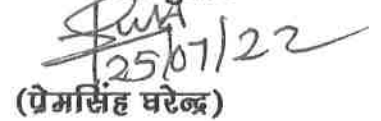 25/07/22
(प्रेमसिंह घरेन्द्र)